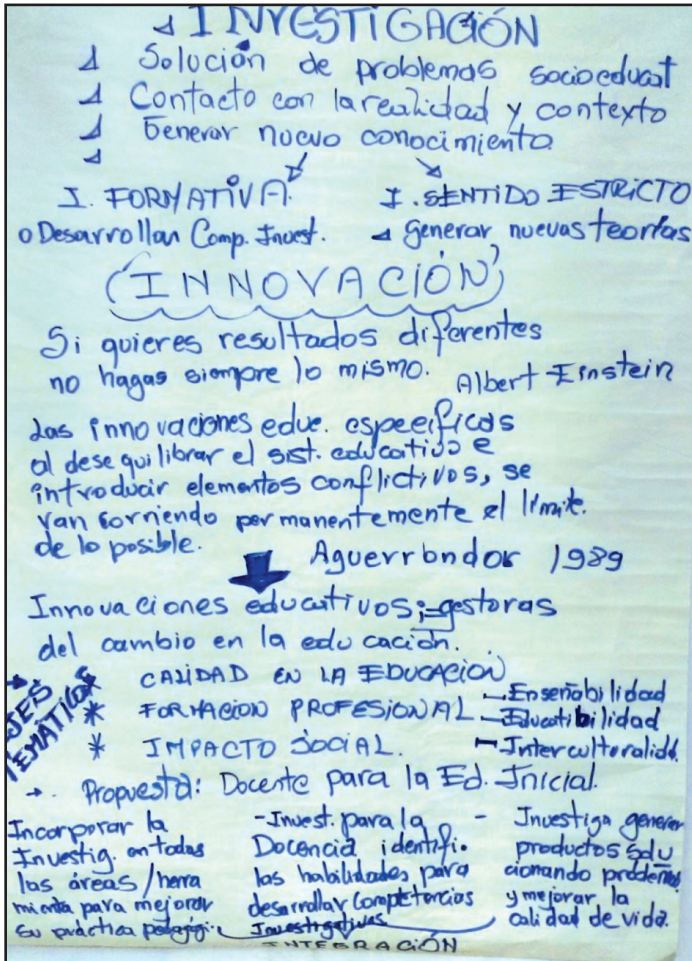 INVESTIGACIÓN
Solución de problemas socioeducat
Contacto con la realidad y contexto
Generar nuevo conocimiento.
I. FORMATIVA. I. SENTIDO ESTRICTO
o Desarrollan Comp. Invest. generar nuevas teorías
(INNOVACIÓN)
Si quieres resultados diferentes
no hagas siempre lo mismo. Albert Einstein
Las innovaciones educ. específicas
al desequilibrar el sist. educativo e
introducir elementos conflictivos, se
van corriendo permanentemente el límite
de lo posible. Aguerrondor 1989
Innovaciones educativos; gestoras
del cambio en la educación.
JES
TEMÁTICOS
* CALIDAD EN LA EDUCACIÓN
* FORMACION PROFESIONAL - Enseñabilidad
- Educatibilidad
* IMPACTO SOCIAL. - Interculturalidd.
Propuesta: Docente para la Ed. Inicial.
Incorporar la
Investig. en todas
las áreas/herra
mienta para mejorar
su práctica pedagógi.
- Invest. para la
Docencia identifi.
las habilidades para
desarrollar competencias
Investigativas
- Investiga generar
productos solu
cionando problemas
y mejorar la
calidad de vida.
INTEGRACIÓN